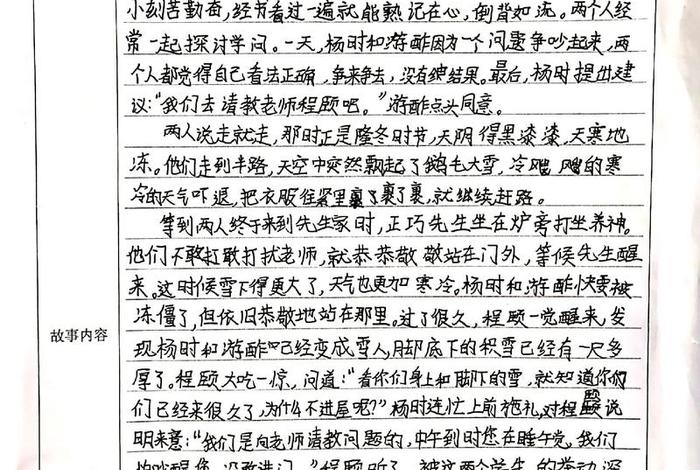 小刻苦勤奋，经书看过一遍就能熟记在心，倒背如流。两个人经
常一起探讨学问。一天，杨时和游酢因为一个问题争吵起来，两
个人都觉得自己看法正确，争来争去，没有结果。最后，杨时提出建
议："我们去请教老师程颐吧。"游酢点头同意。
两人说走就走，那时正是隆冬时节，天阴得黑漆漆，天寒地
冻。他们走到半路，天空中突然飘起了鹅毛大雪，冷飕飕的寒
冷的天气吓退，把衣服往紧里裹了裹了裹，就继续赶路。
等到两人终于来到先生家时，正巧先生坐在炉旁打坐养神。
他们不敢打敢打扰老师，就恭恭敬敬站在门外，等候先生醒
来。这时候雪下得更大了，天气也更加寒冷。杨时和游酢快要被
冻僵了，但依旧恭敬地站在那里。过了很久，程颐一觉醒来，发
故事内容
现杨时和游酢已经变成雪人，脚底下的积雪已经有一尺多
厚了。程颐大吃一惊，问道："看你们身上和脚下的雪，就知道你们
们已经来很久了，为什么不进屋呢？"杨时连忙上前施礼，对程颐说
明来意："我们是向老师请教问题的，中午到时您在睡午觉，我们
怕吵醒您，没敢进门。"程颐听了，被这两个学生的举动深